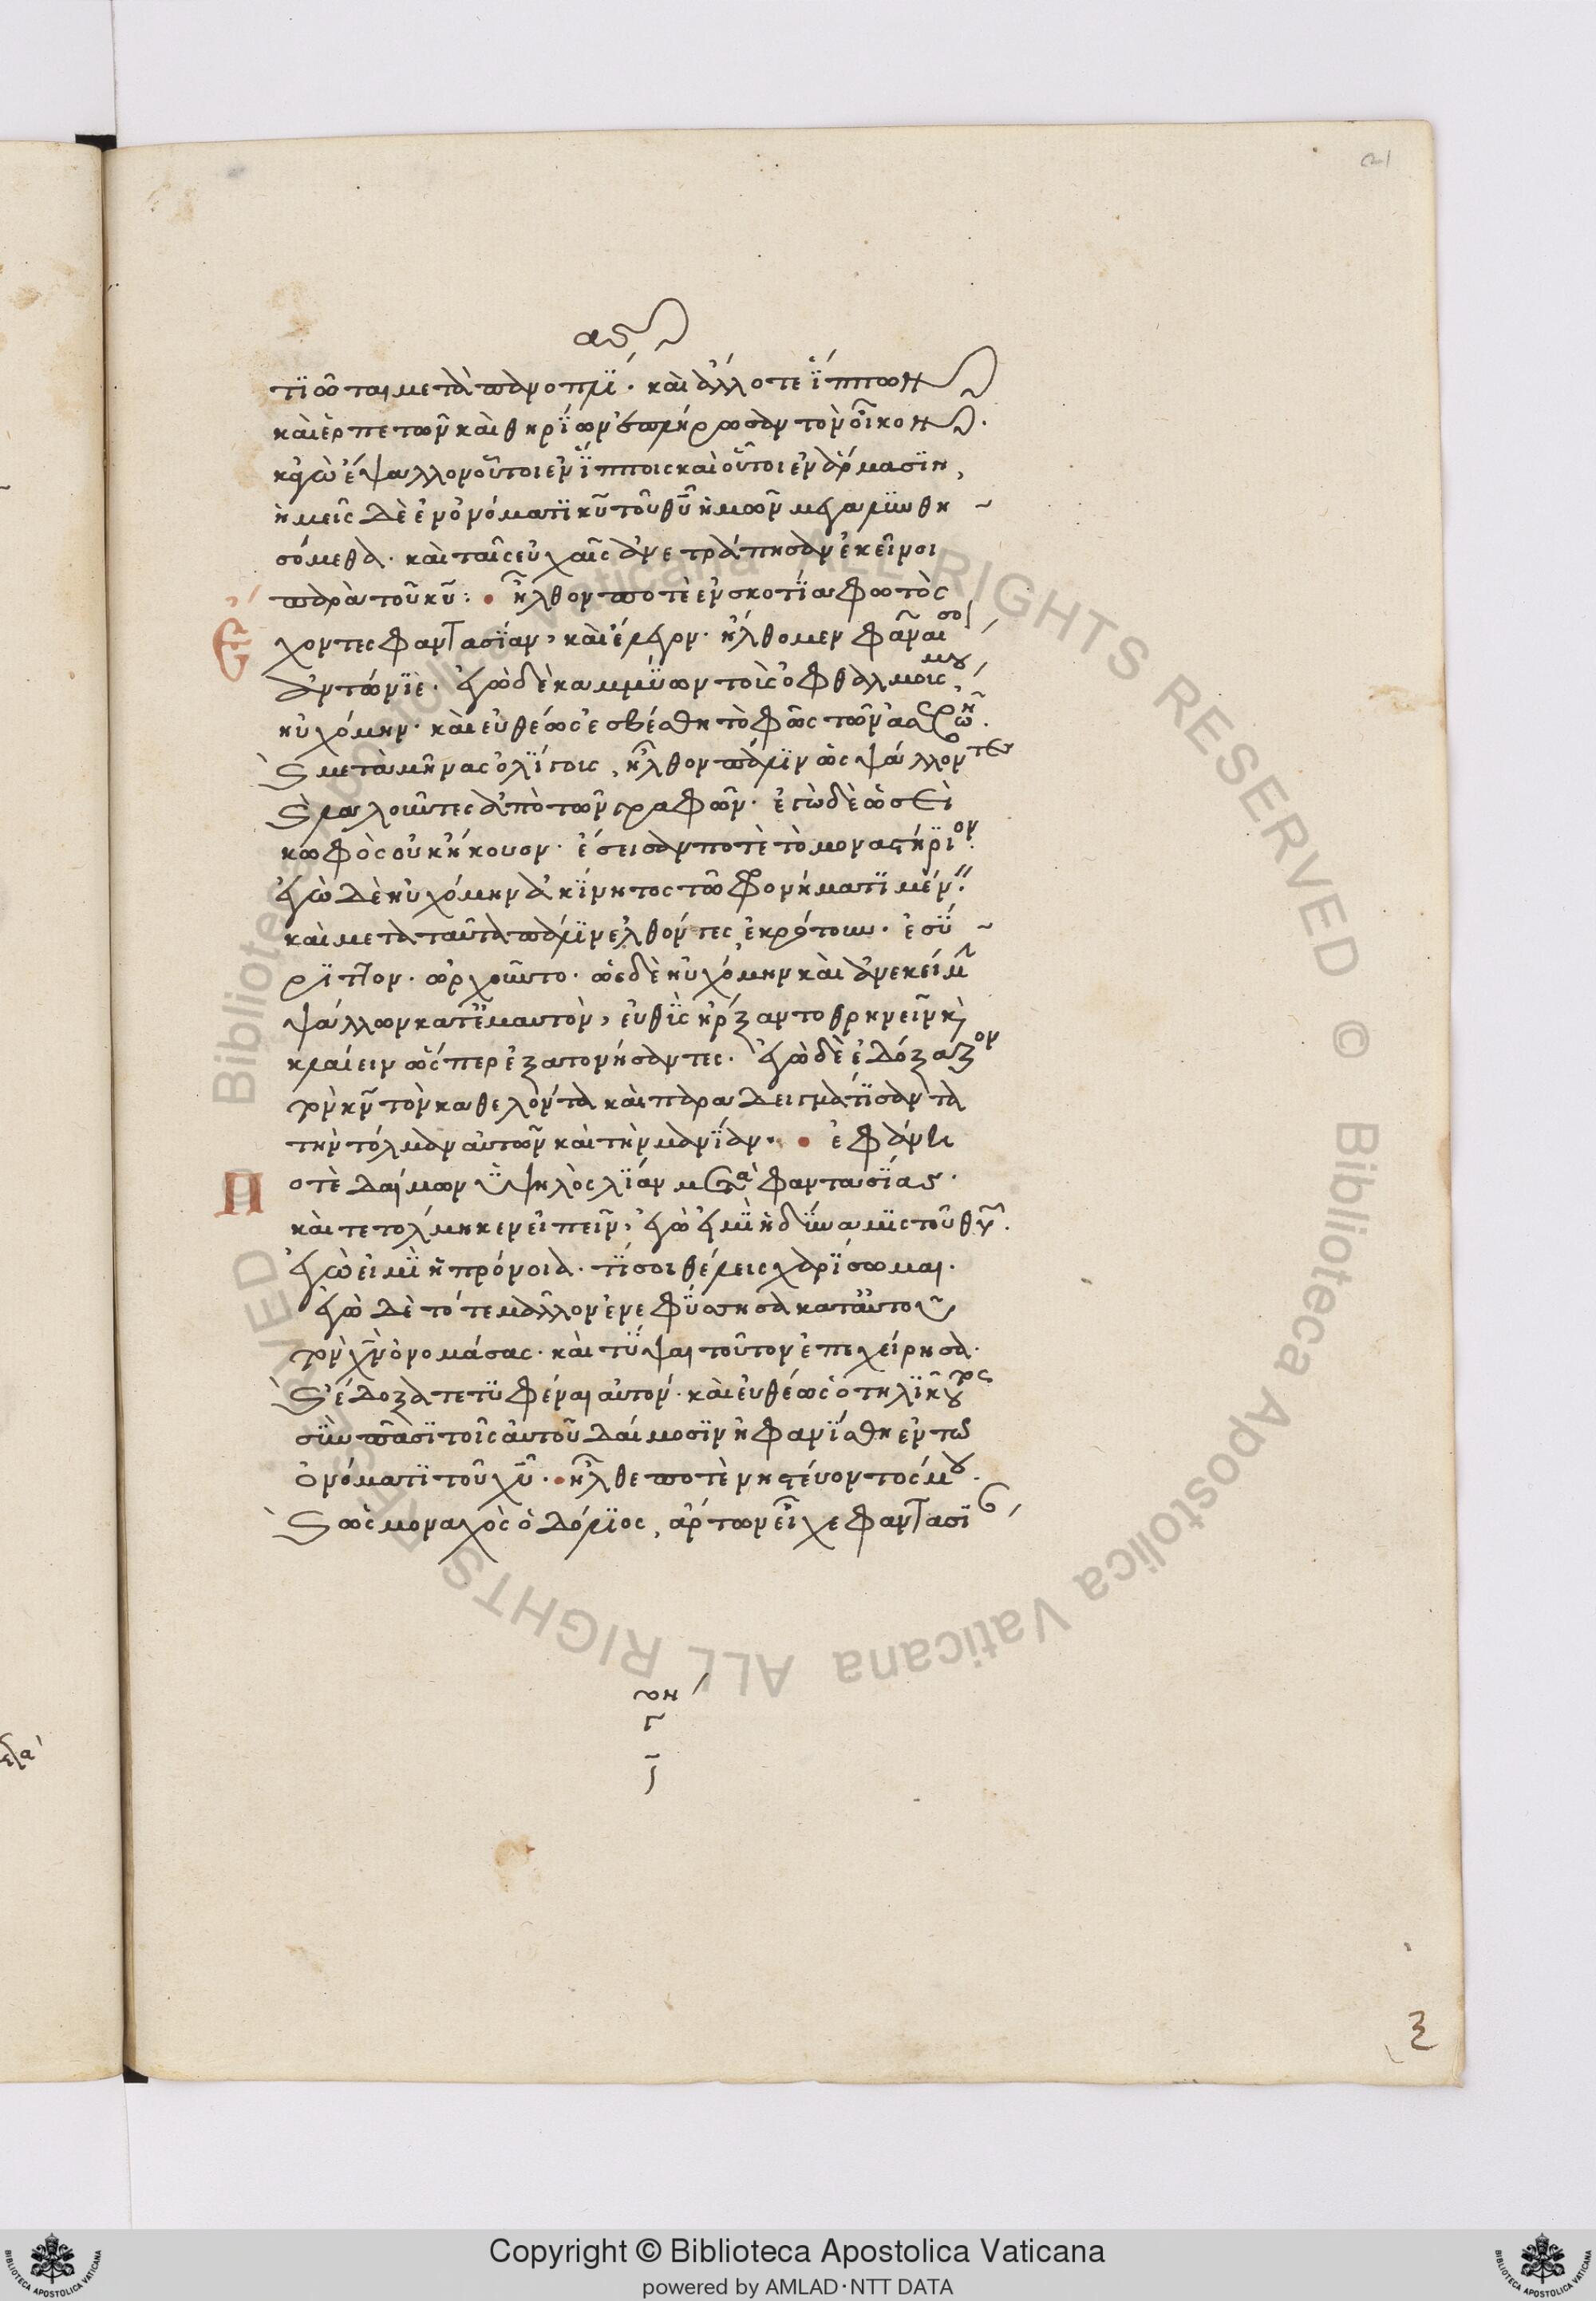 21
ας
τϊῶται μετὰ πανοπλΐ. καὶ ἄλλοτε ἵππων
καὶ ἑρπετῶν καὶ θηρΐων ἐπλήρωσαν τὸν οἶκον.
κἀγὼ ἔψαλλον οὗτοι ἐν ἵπποις καὶ οὗτοι ἐν ἅρμασϊν,
ἡμεῖς δὲ ἐν ὀνόματϊ κυ τοῦ θυ ἡμῶν μεγαλυνθη
σόμεθα. καὶ ταῖς εὐχαῖς ἀνετράπησαν ἐκεῖνοι
παρὰ τοῦ κυ: • ἦλθον ποτὲ ἐν σκοτΐα φωτὸς
Ἔχοντες φαντασΐαν, καὶ ἔλεγον. ἤλθομεν φᾶναι σοι
ἀντώνϊε. ἐγὼ δὲ καμμΰων τοὺς ὀφθαλμούς μου,
ηὐχόμην. καὶ εὐθέως ἐσβέσθη τὸ φῶς τῶν
καὶ μετὰ μῆνας ὀλΐγους, ἦλθον πάλϊν ὡς ψάλλοντες
καὶ λαλοῦντες ἀπὸ τῶν γραφῶν. ἐγὼ δὲ ὡσεὶ
κωφὸς οὐκ ἤκουον. ἔσεισάν ποτὲ τὸ μοναστήρϊον.
ἐγὼ δὲ ηὐχόμην ἀκΐνητος τῶ φρονήματϊ μένων.
καὶ μετὰ ταῦτα πάλϊν ἐλθόντες, ἐκρότουν. ἐσύ
ρϊττον. ὠρχοῦντο. ὡς δὲ ηὐχόμην καὶ ἀνεκείμην
ψάλλων κατ' ἐμαυτὸν, εὐθὺς ἤρξαντο θρηνεῖν καὶ
κλαίειν ὥσπερ ἐξατονήσαντες. ἐγὼ δὲ ἐδόξαζον
τὸν κν τὸν καθελόντα καὶ παραδειγματΐσαντα
τὴν τόλμαν αὐτῶν καὶ τὴν μανΐαν. • ἐφάνη
Ποτὲ δαίμων ὑψηλὸς λΐαν μετὰ φαντασΐας.
καὶ τετόλμηκεν εἰπεῖν, ἐγὼ εἰμϊ ἡ δύναμις τοῦ θυ.
ἐγὼ εἰμὶ ἡ πρόνοια. τΐ σοι θέλεις χαρΐσωμαι.
ἐγὼ δὲ τότε μᾶλλον ἐνεφύσησα κατ' αὐτοῦ
τὸν χν ὀνομάσας. καὶ τύψαι τοῦτον ἐπεχείρησα.
καὶ ἔδοξα τετυφέναι αὐτόν. καὶ εὐθέως ὁ τηλϊκοῦτος
σὺν πᾶσϊ τοῖς αὐτοῦ δαίμοσϊν ἠφανΐσθη ἐν τῶ
ὀνόματϊ τοῦ χυ. • ἦλθε ποτὲ νηστεύοντός μου.
καὶ ὡς μοναχὸς ὁ δόλϊος, ἄρτων εἶχε φαντασΐαν